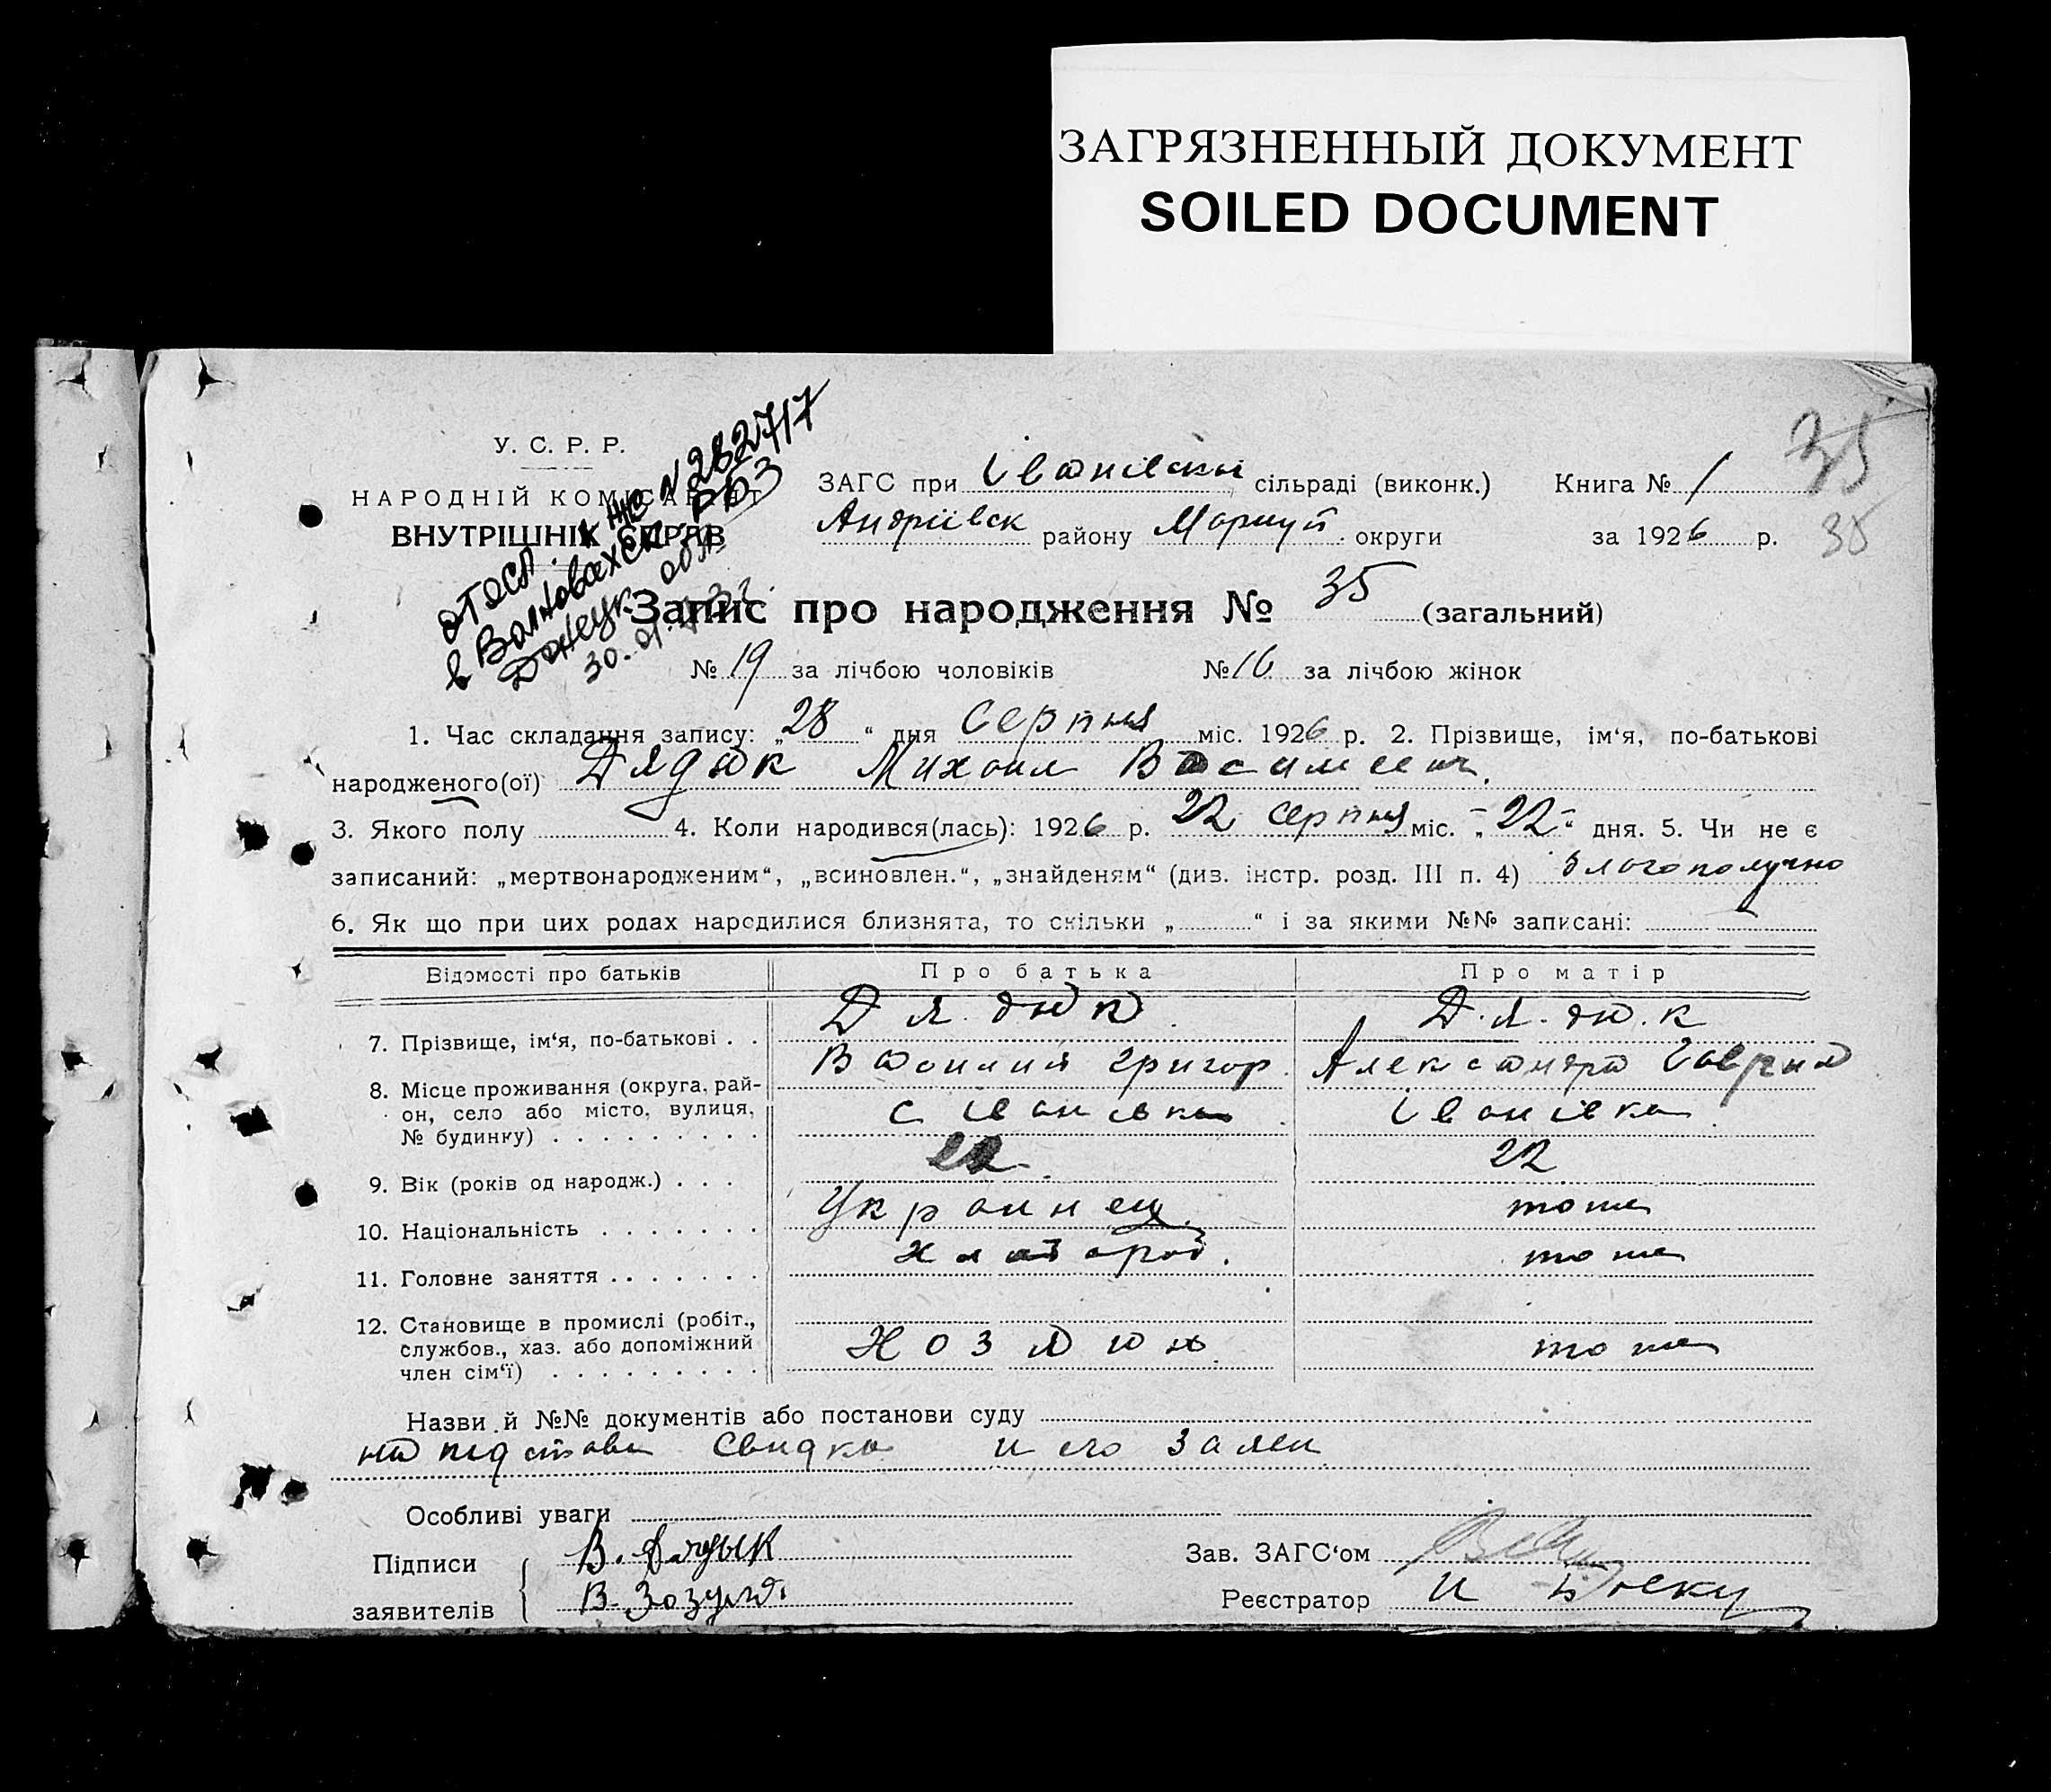 ЗАГРЯЗНЕННЫЙ ДОКУМЕНТ
SOILED DOCUMENT
35
У. С. Р. Р.
НАРОДНІЙ КОМІСАРІЯТ
ВНУТРІШНІХ СПРАВ
№ 282717
в Волновахск. РБЗ
Донецк обл
ЗАГС при Іванівскій сільраді (виконк.) Книга № 1
Андріівск району Маріуп. округи за 1926 р. 35
Запис про народження № 35 (загальний)
№ 19 за лічбою чоловіків № 16 за лічбою жінок
1. Час складання запису: „28“ дня Серпня міс. 1926 р. 2. Прізвище, ім‘я, по-батькові
народженого(ої) Дядюк Михаил Василиевич.
3. Якого полу 4. Коли народився(лась): 1926 р. 22 серпня міс. „22“ дня. 5. Чи не є
записаний: „мертвонародженим“, „всиновлен.“, „знайденям“ (див. інстр. розд. III п. 4) благополучно
6. Як що при цих родах народилися близнята, то скільки „ “ і за якими №№ записані: —
Відомості про батьків Про батька Про матір
7. Прізвище, ім‘я, по-батькові . . Дядюк Дядюк
Василий Григор. Александра Гаврил
8. Місце проживання (округа, рай-
он, село або місто, вулиця, с Іванівка Іванівка
№ будинку) . . . . . . . . .
9. Вік (років од народж.) . . . 22 22
10. Національність . . . . . . . Украинец тоже
11. Головне заняття . . . . . . . хлебороб. тоже
12. Становище в промислі (робіт.,
службов., хаз. або допоміжний Хозяин тоже
член сім‘ї) . . . . . . . . .
Назви й №№ документів або постанови суду
на підставі Свидка и его
Особливі уваги
Підписи В. Дядык Зав. ЗАГС‘ом
заявителів В. Зозуля Реєстратор И